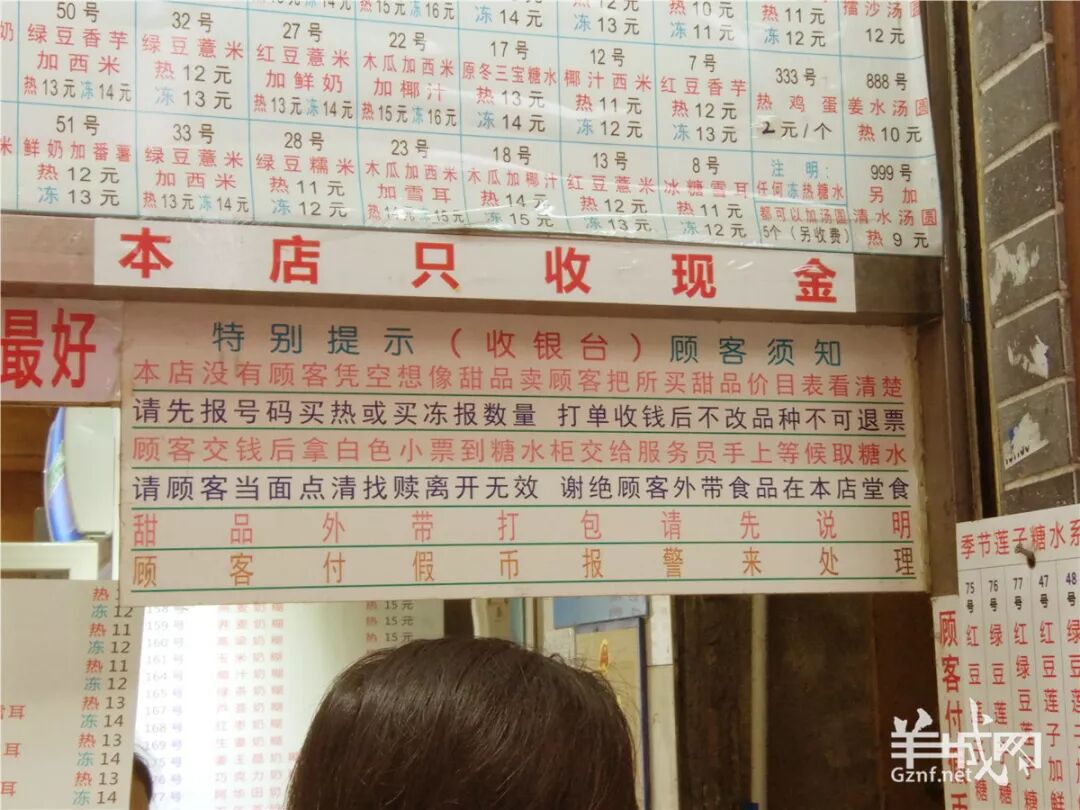 50号
绿豆香芋
加西米
热13元冻14元
32号
绿豆薏米
热12元
冻13元
27号
红豆薏米
加鲜奶
热13元冻14元
热15元冻16元
22号
木瓜加西米
加椰汁
热15元冻16元
冻14元
17号
原冬三宝糖水
热13元
冻14元
冻13元
12号
椰汁西米
热11元
冻12元
热10元
冻11元
7号
红豆香芋
热12元
冻13元
热11元
冻12元
333号
热鸡蛋
2元/个
擂沙汤圆
12元
888号
姜水汤圆
热10元
51号
鲜奶加番薯
热12元
冻13元
33号
绿豆薏米
加西米
热13元冻14元
28号
绿豆糯米
热11元
冻12元
23号
木瓜加西米
加雪耳
热14元冻15元
18号
木瓜加椰汁
热14元
冻15元
13号
红豆薏米
热12元
冻13元
8号
冰糖雪耳
热11元
冻12元
注明:
任何冻热糖水
都可以加汤圆
5个(另收费)
999号
另加
清水汤圆
热9元
本店只收现金
最好
特别提示(收银台)顾客须知
本店没有顾客凭空想像甜品卖顾客把所买甜品价目表看清楚
请先报号码买热或买冻报数量 打单收钱后不改品种不可退票
顾客交钱后拿白色小票到糖水柜交给服务员手上等候取糖水
请顾客当面点清找赎离开无效 谢绝顾客外带食品在本店堂食
甜品外带打包请先说明
顾客付假币报警来处理
冻12
热11
冻12
热11
冻12
热13
冻14
热13
冻14
热13
冻14
159号
160号
161号
玉米奶糊
164号
椰汁奶糊
165号
绿茶奶糊
167号
168号
红枣奶糊
169号
生姜奶糊
巧克力奶
热15元
热15元
热15元
季节莲子糖水系
75号
红豆莲子
76号
绿豆莲子
77号
红绿豆莲子
47号
红豆莲子加
48号
绿豆莲子加
顾客付
羊城网
Gznf.net